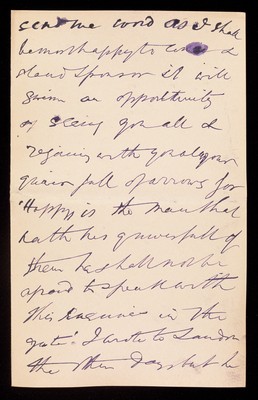 send me word as I shall
be most happy to come &
stand Sponsor it will
give me an opportunity
of seeing you all &
rejoicing with you at your
quiver full of arrows for
"Happy is the man that
hath his quiver full of
them he shall not be
afraid to speak with
his enemies in the
gate". I wrote to
the other day but he